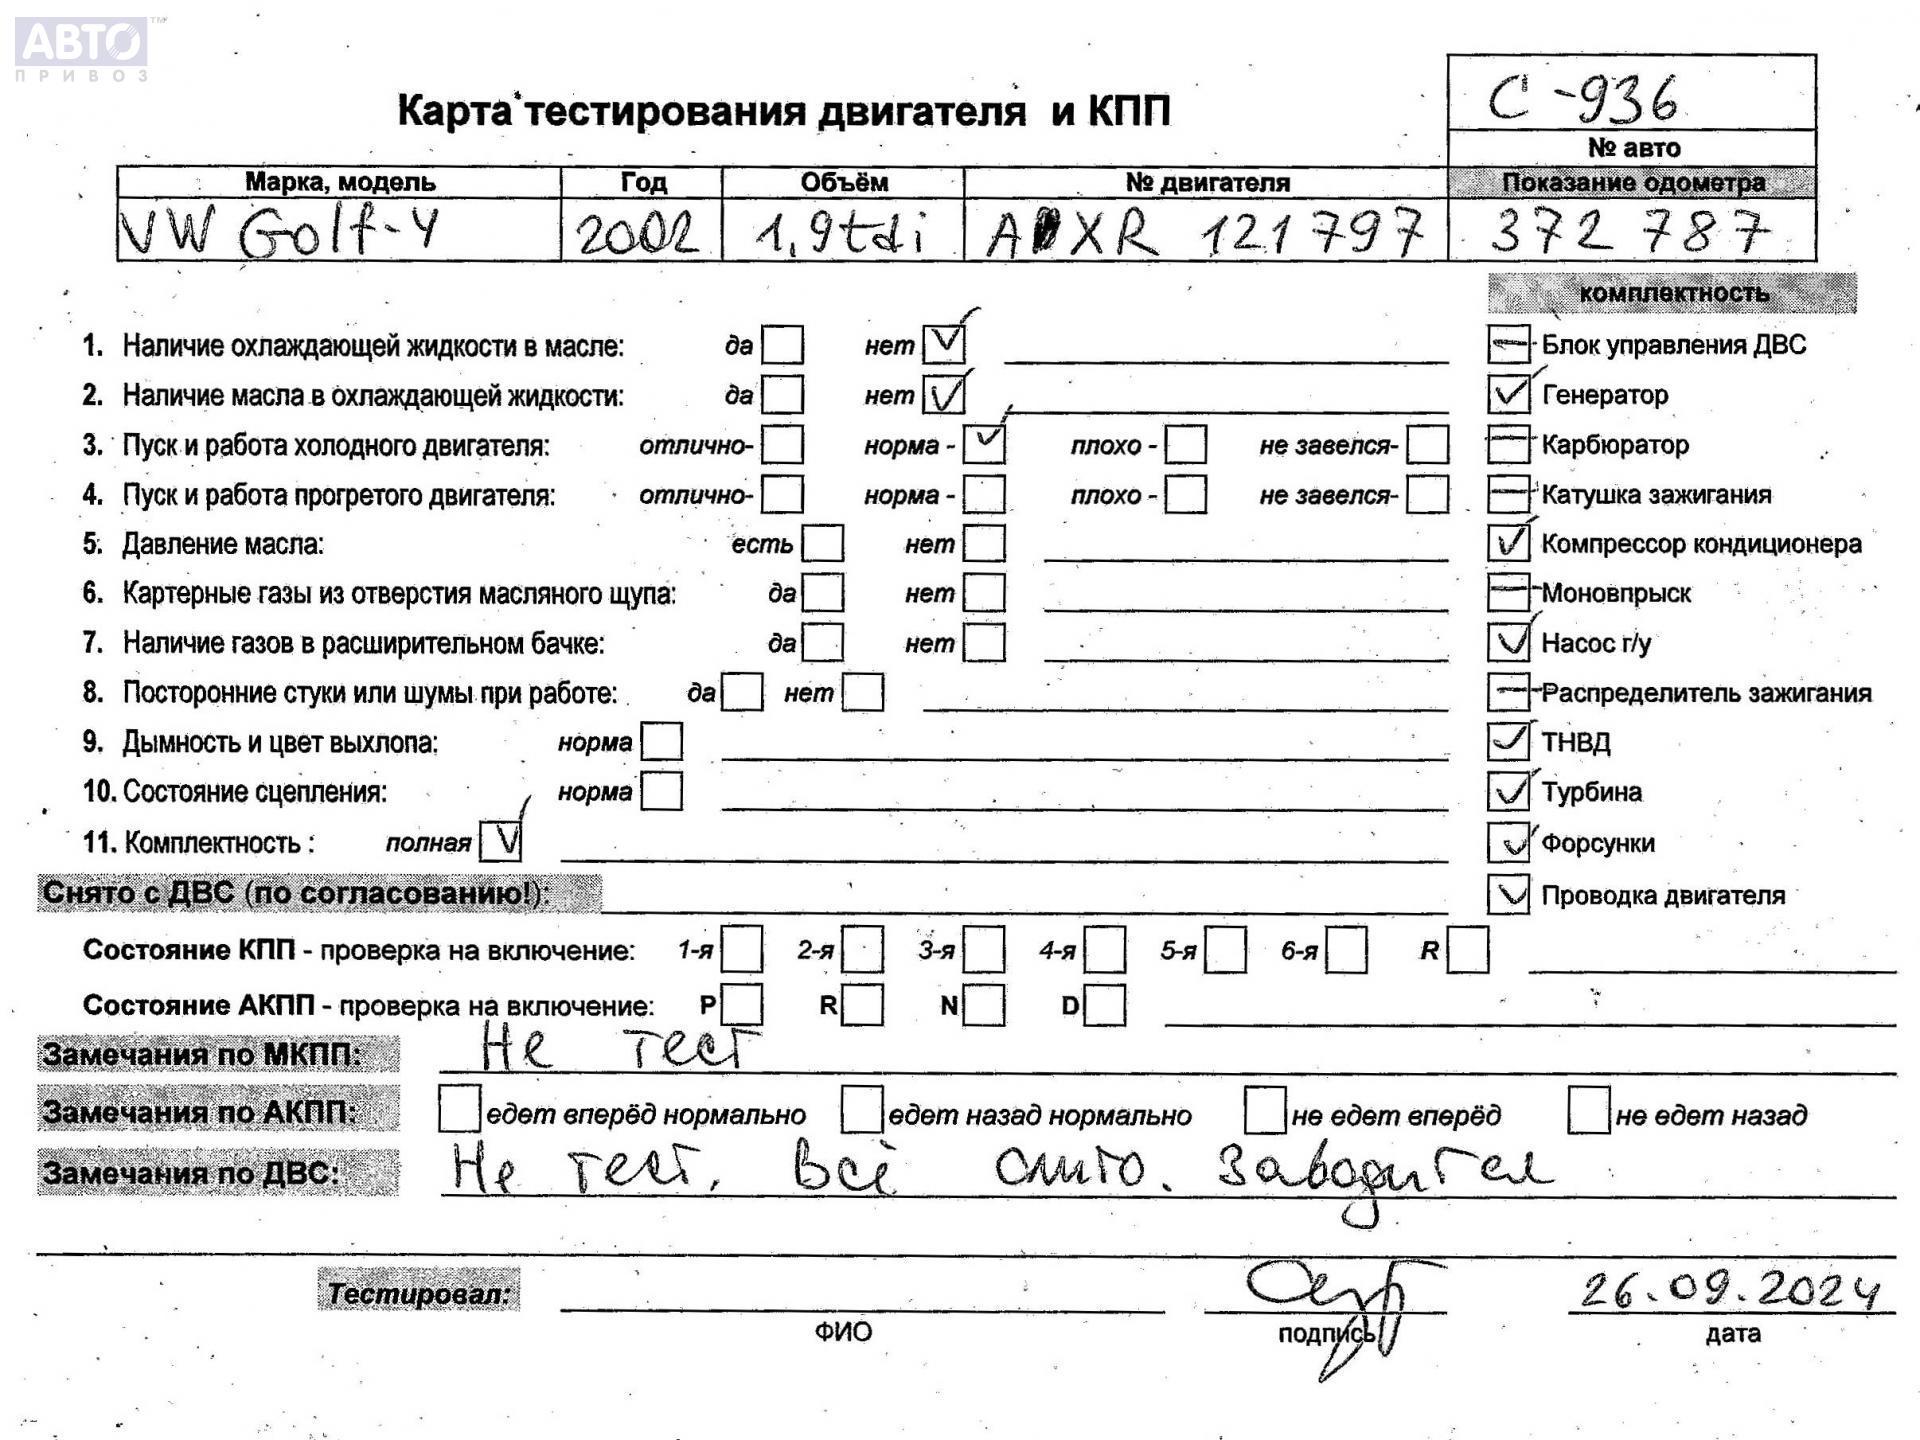 АВТО™
ПРИВОЗ
Карта тестирования двигателя и КПП
С-936
№ авто
Марка, модель Год Объём № двигателя Показание одометра
VW Golf-4 2002 1,9tdi AXR 121797 372 787
комплектность
1. Наличие охлаждающей жидкости в масле: да нет Блок управления ДВС
2. Наличие масла в охлаждающей жидкости: да нет Генератор
3. Пуск и работа холодного двигателя: отлично- норма - плохо - не завелся- Карбюратор
4. Пуск и работа прогретого двигателя: отлично- норма - плохо - не завелся- Катушка зажигания
5. Давление масла: есть нет Компрессор кондиционера
6. Картерные газы из отверстия масляного щупа: да нет Моновпрыск
7. Наличие газов в расширительном бачке: да нет Насос г/у
8. Посторонние стуки или шумы при работе: да нет Распределитель зажигания
9. Дымность и цвет выхлопа: норма ТНВД
10. Состояние сцепления: норма Турбина
11. Комплектность : полная Форсунки
Снято с ДВС (по согласованию!): Проводка двигателя
Состояние КПП - проверка на включение: 1-я 2-я 3-я 4-я 5-я 6-я R
Состояние АКПП - проверка на включение: P R N D
Замечания по МКПП: Не тест
Замечания по АКПП: едет вперёд нормально едет назад нормально не едет вперёд не едет назад
Замечания по ДВС: Не тест. Всё снято. Заводится
Тестировал: 26.09.2024
ФИО подпись дата